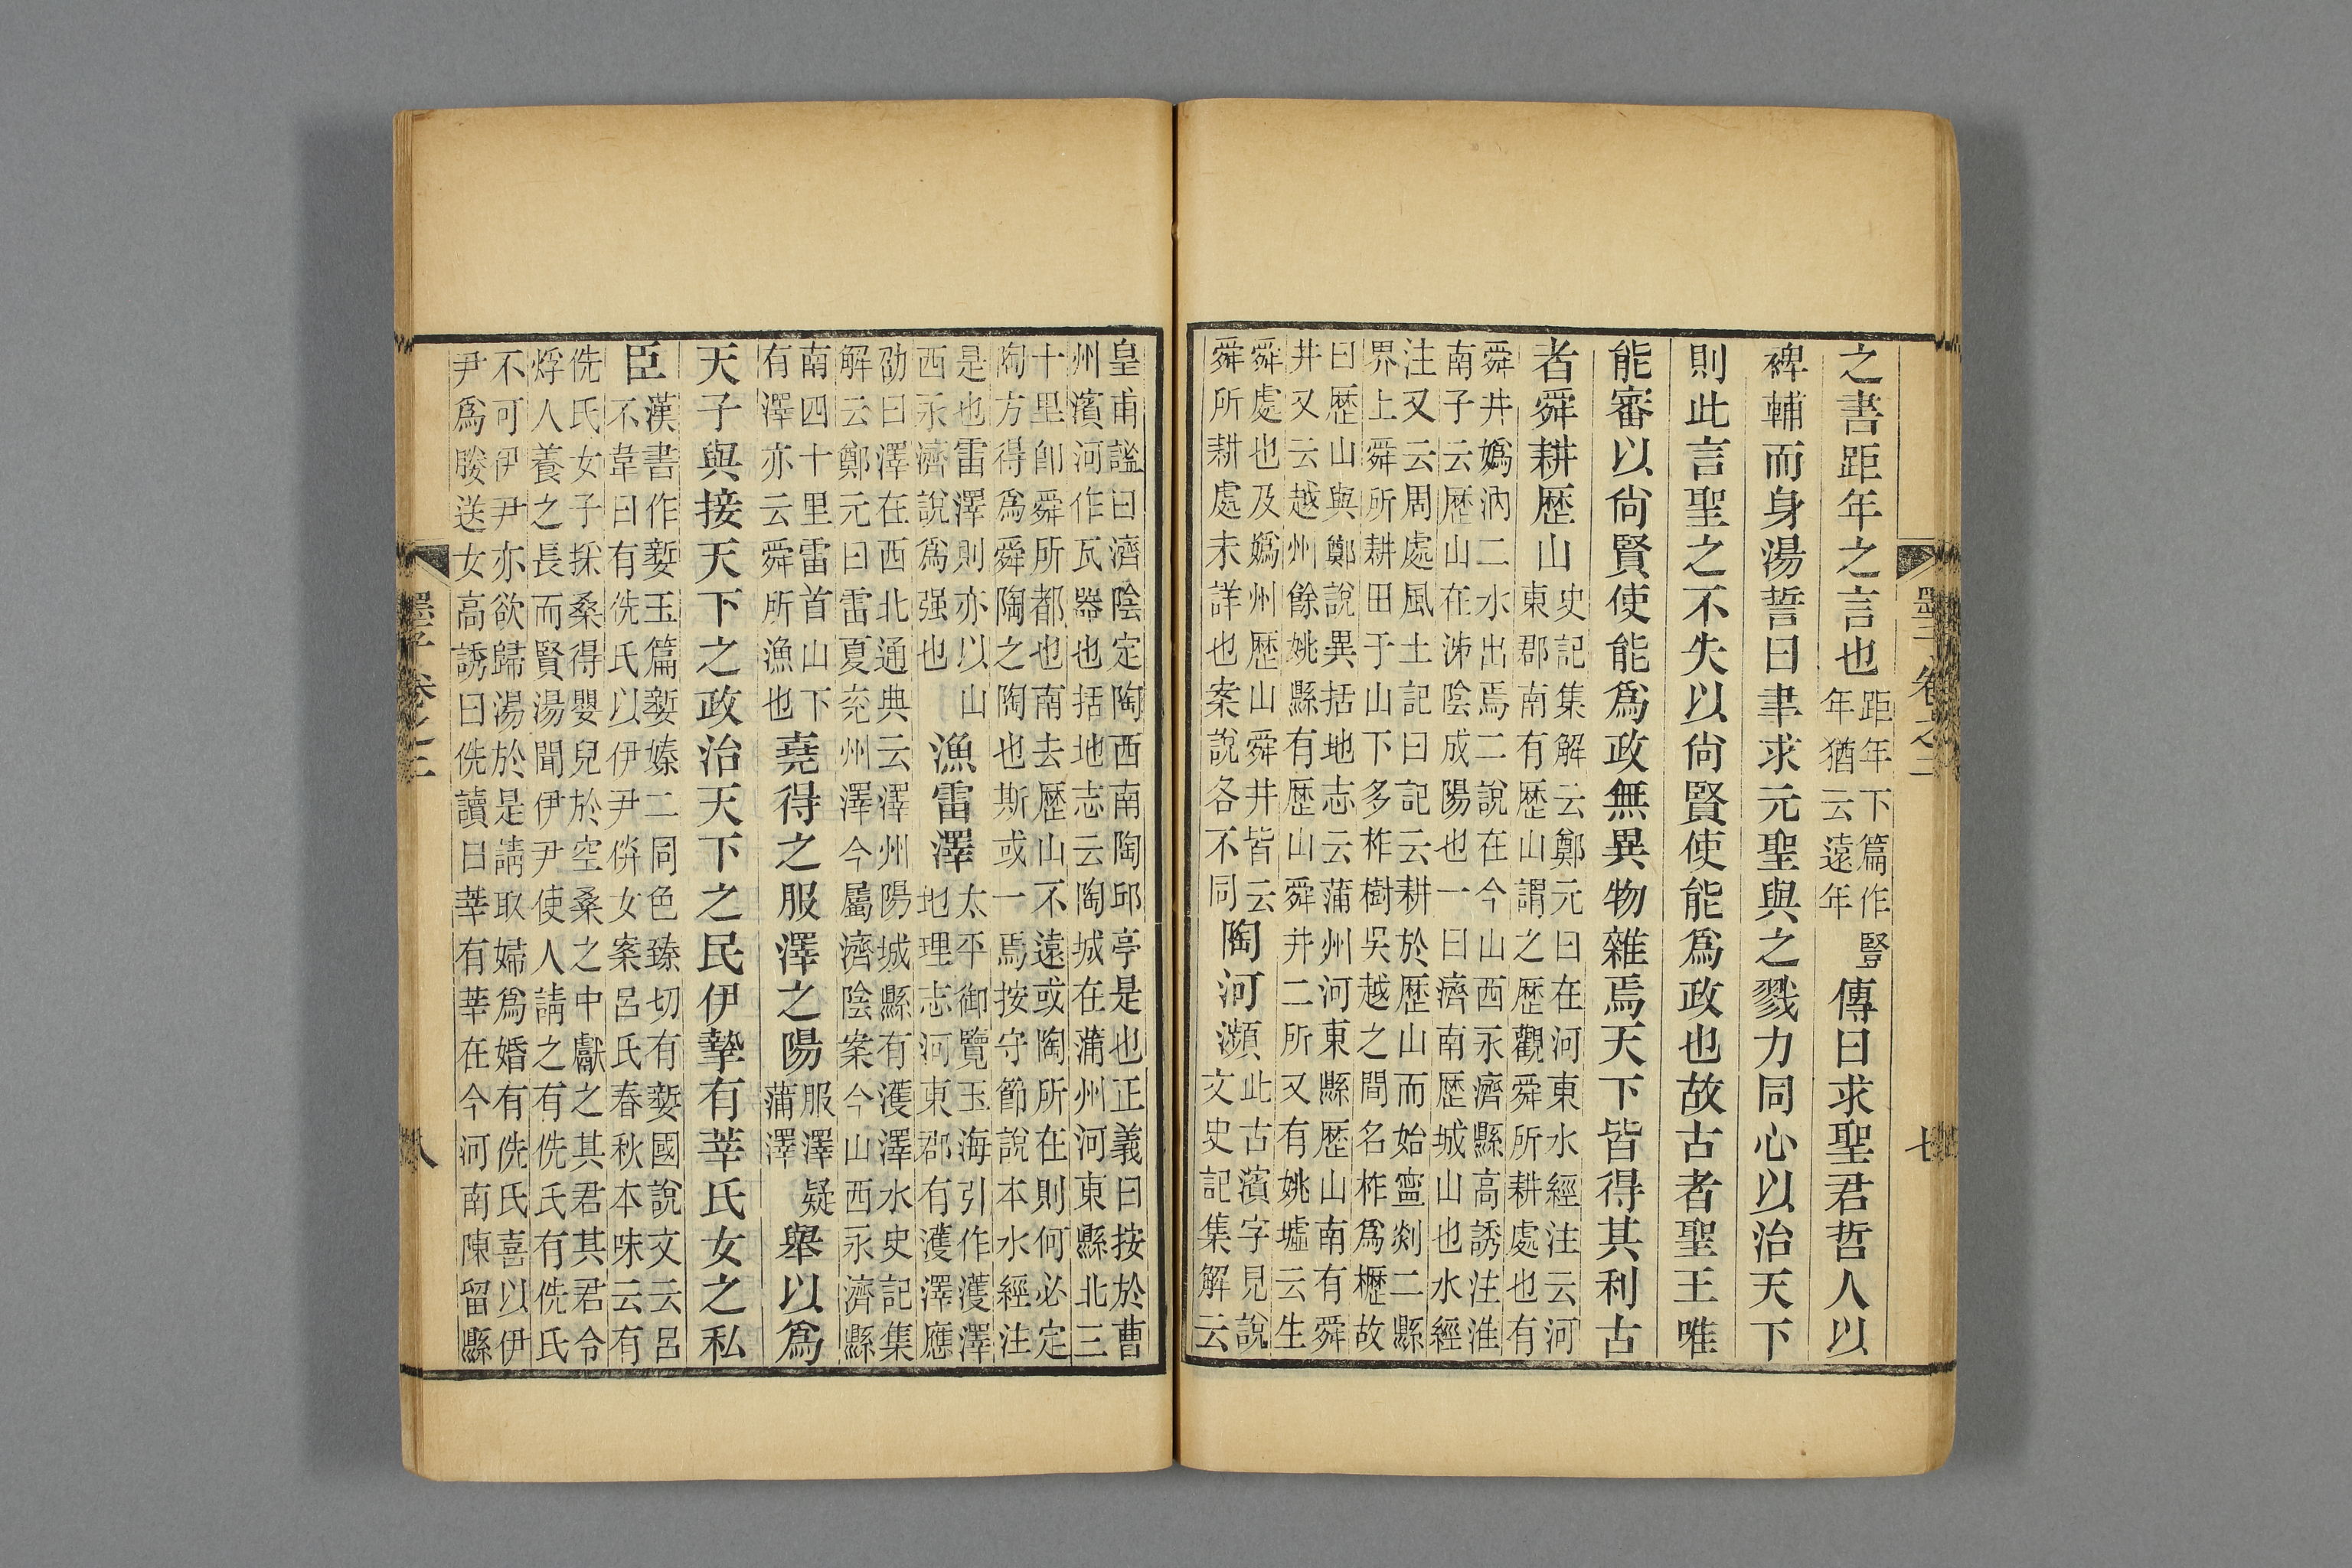 墨子卷之二
七
之書距年之言也距年下篇作豎年猶云遠年傳曰求聖君哲人以
裨輔而身湯誓曰聿求元聖與之戮力同心以治天下
則此言聖之不失以尙賢使能爲政也故古者聖王唯
能審以尙賢使能爲政無異物雜焉天下皆得其利古
者舜耕歷山史記集解云鄭元曰在河東水經注云河東郡南有歷山謂之歷觀舜所耕處也有
舜井嬀汭二水出焉二說在今山西永濟縣高誘注淮南子云歷山在泲陰成陽也一曰濟南歷城山也水經
注又云周處風土記曰記云耕於歷山而始寧剡二縣界上舜所耕田于山下多柞樹吳越之間名柞爲櫪故
曰歷山與鄭說異括地志云蒲州河東縣歷山南有舜井又云越州餘姚縣有歷山舜井二所又有姚墟云生
舜處也及嬀州歷山舜井皆云舜所耕處未詳也案說各不同陶河瀕此古濱字見說文史記集解云
皇甫謐曰濟陰定陶西南陶邱亭是也正義曰按於曹州濱河作瓦器也括地志云陶城在蒲州河東縣北三
十里卽舜所都也南去歷山不遠或陶所在則何必定陶方得爲舜陶之陶也斯或一焉按守節說本水經注
是也雷澤則亦以山西永濟說爲强也漁雷澤太平御覽玉海引作濩澤地理志河東郡有濩澤應
劭曰澤在西北通典云澤州陽城縣有濩澤水史記集解云鄭元曰雷夏兗州澤今屬濟陰案今山西永濟縣
南四十里雷首山下有澤亦云舜所漁也堯得之服澤之陽服澤疑蒲澤舉以爲
天子與接天下之政治天下之民伊摯有莘氏女之私
臣漢書作㜪玉篇㜪嫀二同色臻切有㜪國說文云呂不韋曰有侁氏以伊尹倂女案呂氏春秋本味云有
侁氏女子採桑得嬰兒於空桑之中獻之其君其君令烰人養之長而賢湯聞伊尹使人請之有侁氏有侁氏
不可伊尹亦欲歸湯於是請取婦爲婚有侁氏喜以伊尹爲媵送女高誘曰侁讀曰莘有莘在今河南陳留縣
墨子卷之二
八